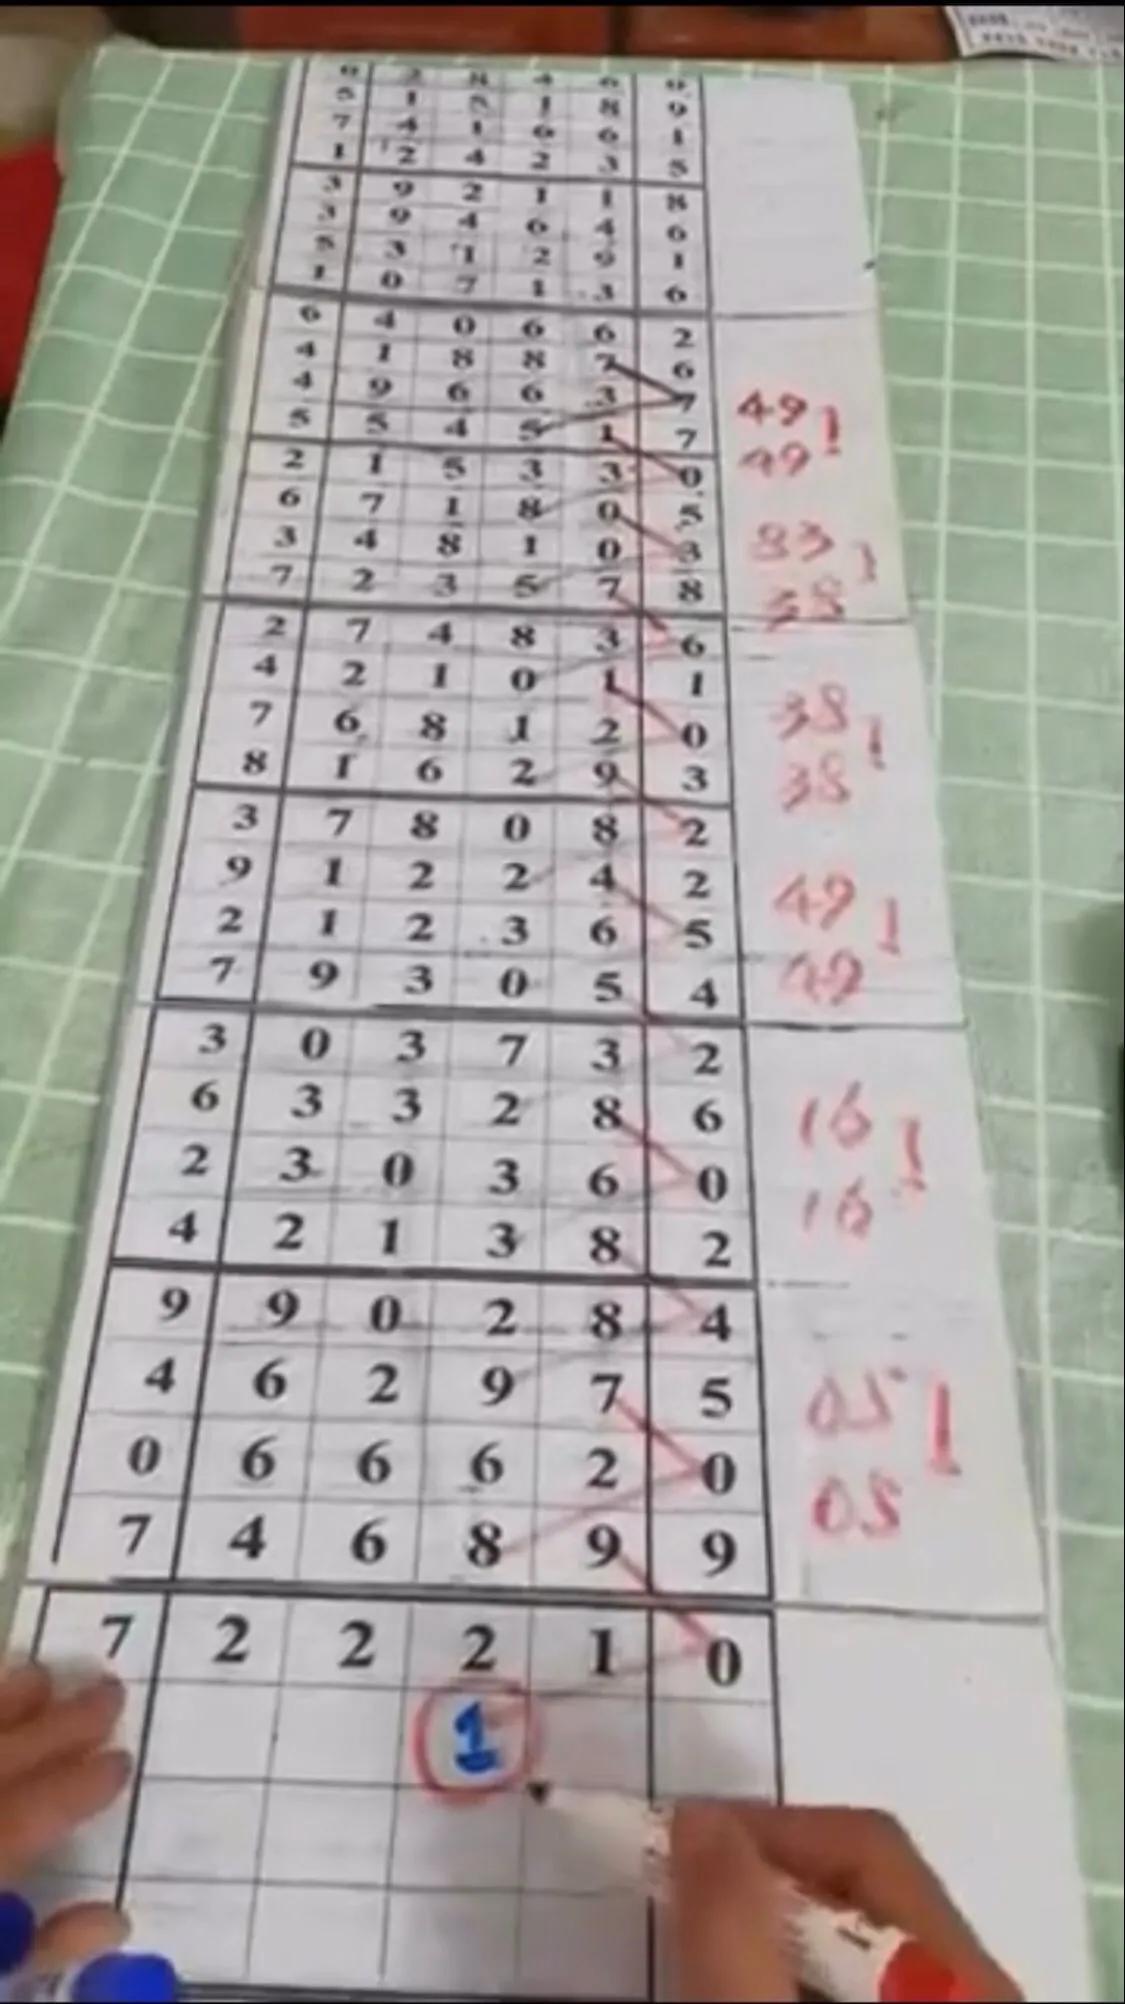 5 1 5 1 8 9
7 4 1 6 6 1
1 2 4 2 3 5
3 9 2 1 1 8
3 9 4 6 4 6
5 3 1 2 9 1
1 0 7 1 3 6
6 4 0 6 6 2
4 1 8 8 7 6
4 9 6 6 3 7 49
5 5 4 5 1 7 49
2 1 5 3 3 0
6 7 1 8 0 5
3 4 8 1 0 3 83
7 2 3 5 7 8 38
2 7 4 8 3 6
4 2 1 0 1 1
7 6 8 1 2 0 38
8 1 6 2 9 3 38
3 7 8 0 8 2
9 1 2 2 4 2 49
2 1 2 3 6 5
7 9 3 0 5 4 49
3 0 3 7 3 2
6 3 3 2 8 6 16
2 3 0 3 6 0
4 2 1 3 8 2 16
9 9 0 2 8 4
4 6 2 9 7 5 05
0 6 6 6 2 0
7 4 6 8 9 9 05
7 2 2 2 1 0
1